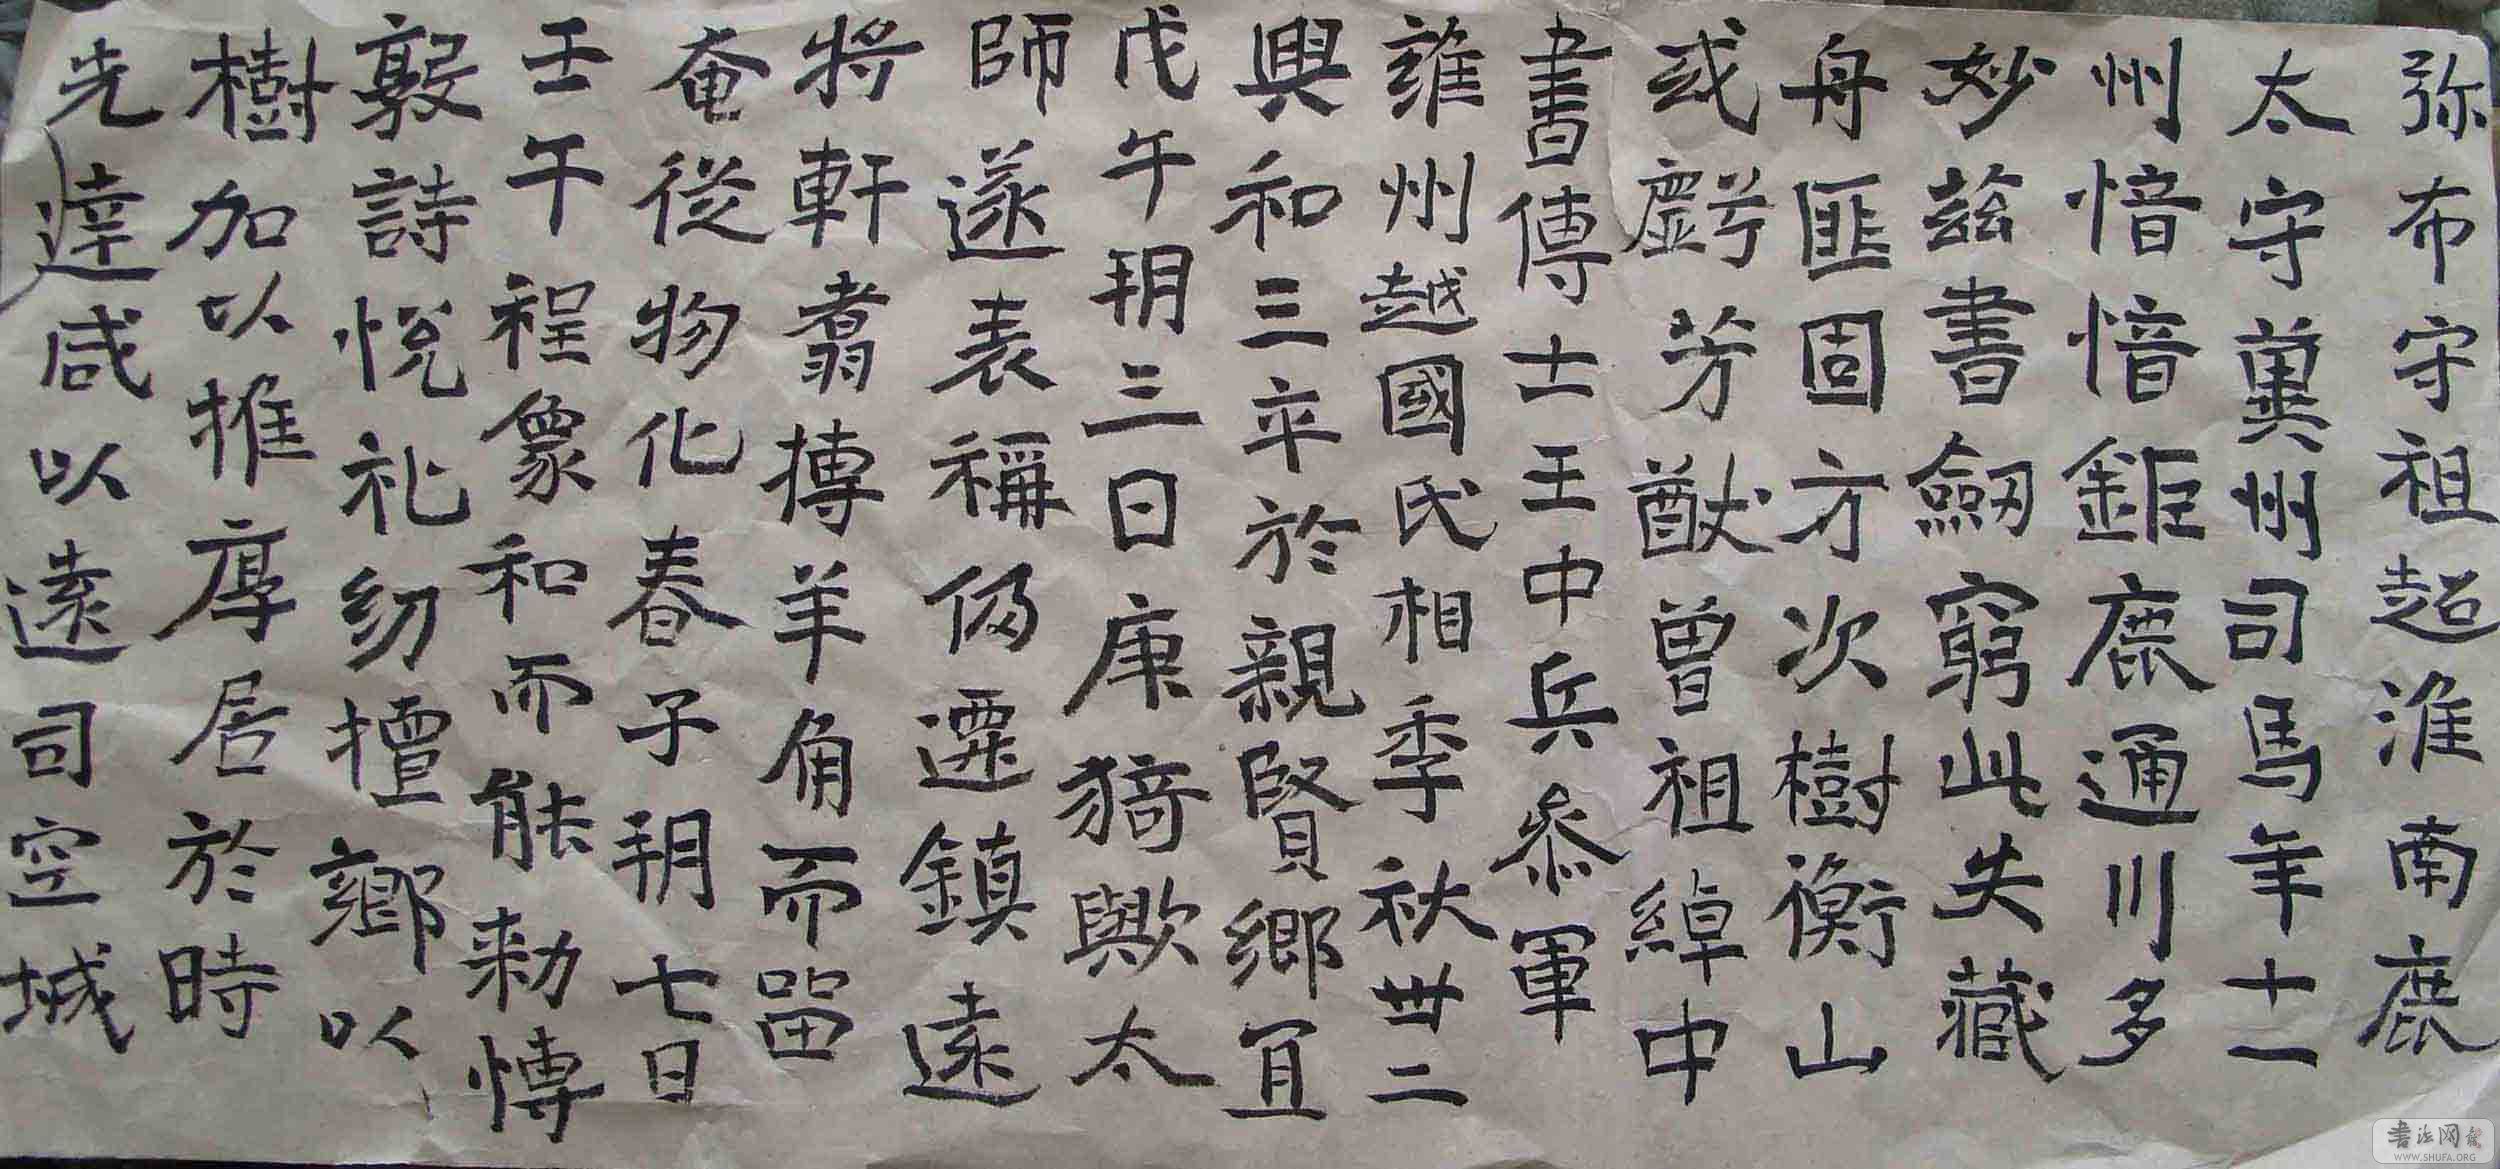 弥布守祖超淮南鹿
太守冀州司馬年十一
州愔愔鉅鹿通川多
妙茲書劒窮此失藏
舟匪固方次樹衡山
或虧芳猷曾祖綽中
書傳士王中兵參軍
雍州越國氏相季秋卅二
興和三卒於親賢鄉宜
戊午玥三日庚猗歟太
師遂表稱偽遷鎮遠
將軒翥摶羊角而畱
奄從物化春子玥七日
壬午程象和而能勑慱
敦詩悅礼幼擅鄉以
樹加以推厚居於時
先達咸以遠司空城
書法网
WWW.SHUFA.ORG